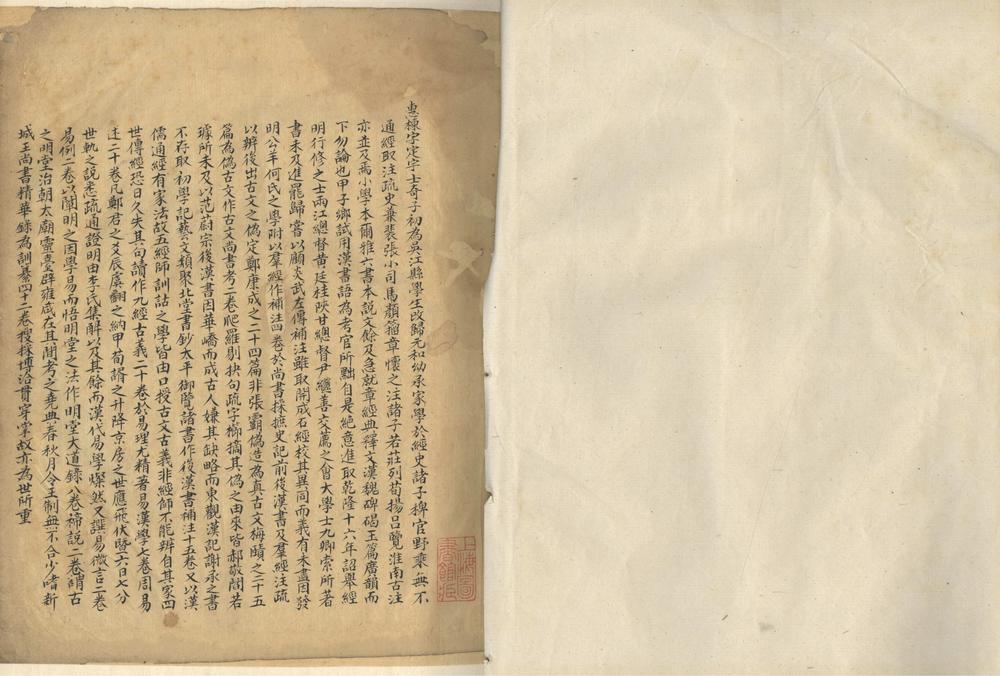 惠棟字定宇士奇子初為吳江縣學生改歸元和幼承家學於經史諸子稗官野乘無不
通經取注疏史兼裴張小司馬顏籀章懷之注諸子若莊列荀揚呂覽淮南古注
亦並及焉小學本爾雅六書本說文餘及急就章經典釋文漢魏碑碣玉篇廣韻而
下勿論也甲子鄉試用漢書語為考官所黜自是絕意進取乾隆十六年詔舉經
明行修之士兩江總督黃廷桂陝甘總督尹繼善交薦之會大學士九卿索所著
書未及進罷歸嘗以顧炎武左傳補注雖取開成石經校其異同而義有未盡因發
明公羊何氏之學附以羣經作補注四卷於尚書採摭史記前後漢書及羣經注疏
以辨後出古文之偽定鄭康成之二十四篇非張霸偽造為真古文梅賾之二十五
篇為偽古文作古文尚書考二卷爬羅剔抉句疏字櫛摘其偽之由來皆郝敬閻若
璩所未及以范蔚宗後漢書因華嶠而成古人嫌其缺略而東觀漢記謝承之書
不存取初學記藝文類聚北堂書鈔太平御覽諸書作後漢書補注十五卷又以漢
儒通經有家法故五經師訓詁之學皆由口授古文古義非經師不能辨自其家四
世傳經恐日久失其句讀作九經古義二十卷於易理尤精著易漢學七卷周易
述二十卷凡鄭君之爻辰虞翻之納甲荀諝之升降京房之世應飛伏暨六日七分
世軌之說悉疏通證明由李氏集解以及其餘而漢代易學燦然又譔易微言二卷
易例二卷以闡明之因學易而悟明堂之法作明堂大道錄八卷禘說二卷謂古
之明堂治朝太廟靈臺辟雍咸在其間考之堯典春秋月令王制無不合少嗜新
城王尚書精華錄為訓纂四十二卷搜採博洽貫穿掌故亦為世所重
上海圖
書館藏